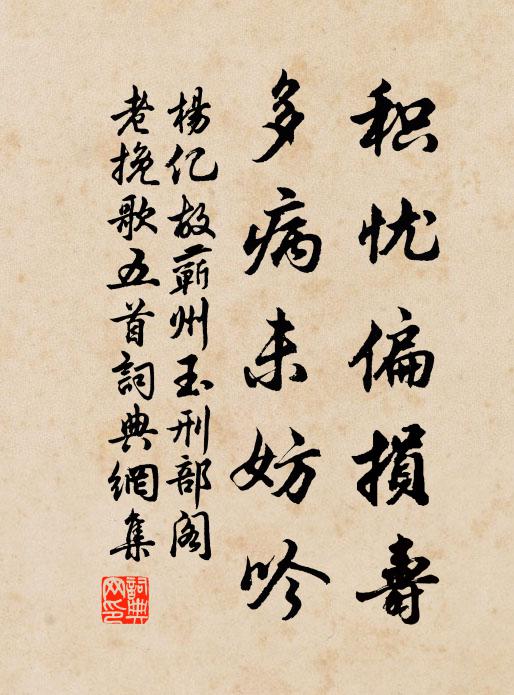 积忧偏损寿
多病未妨吟
楊亿故蕲州玉刑部阁
老挽歌五首詞典網集
詞典网印